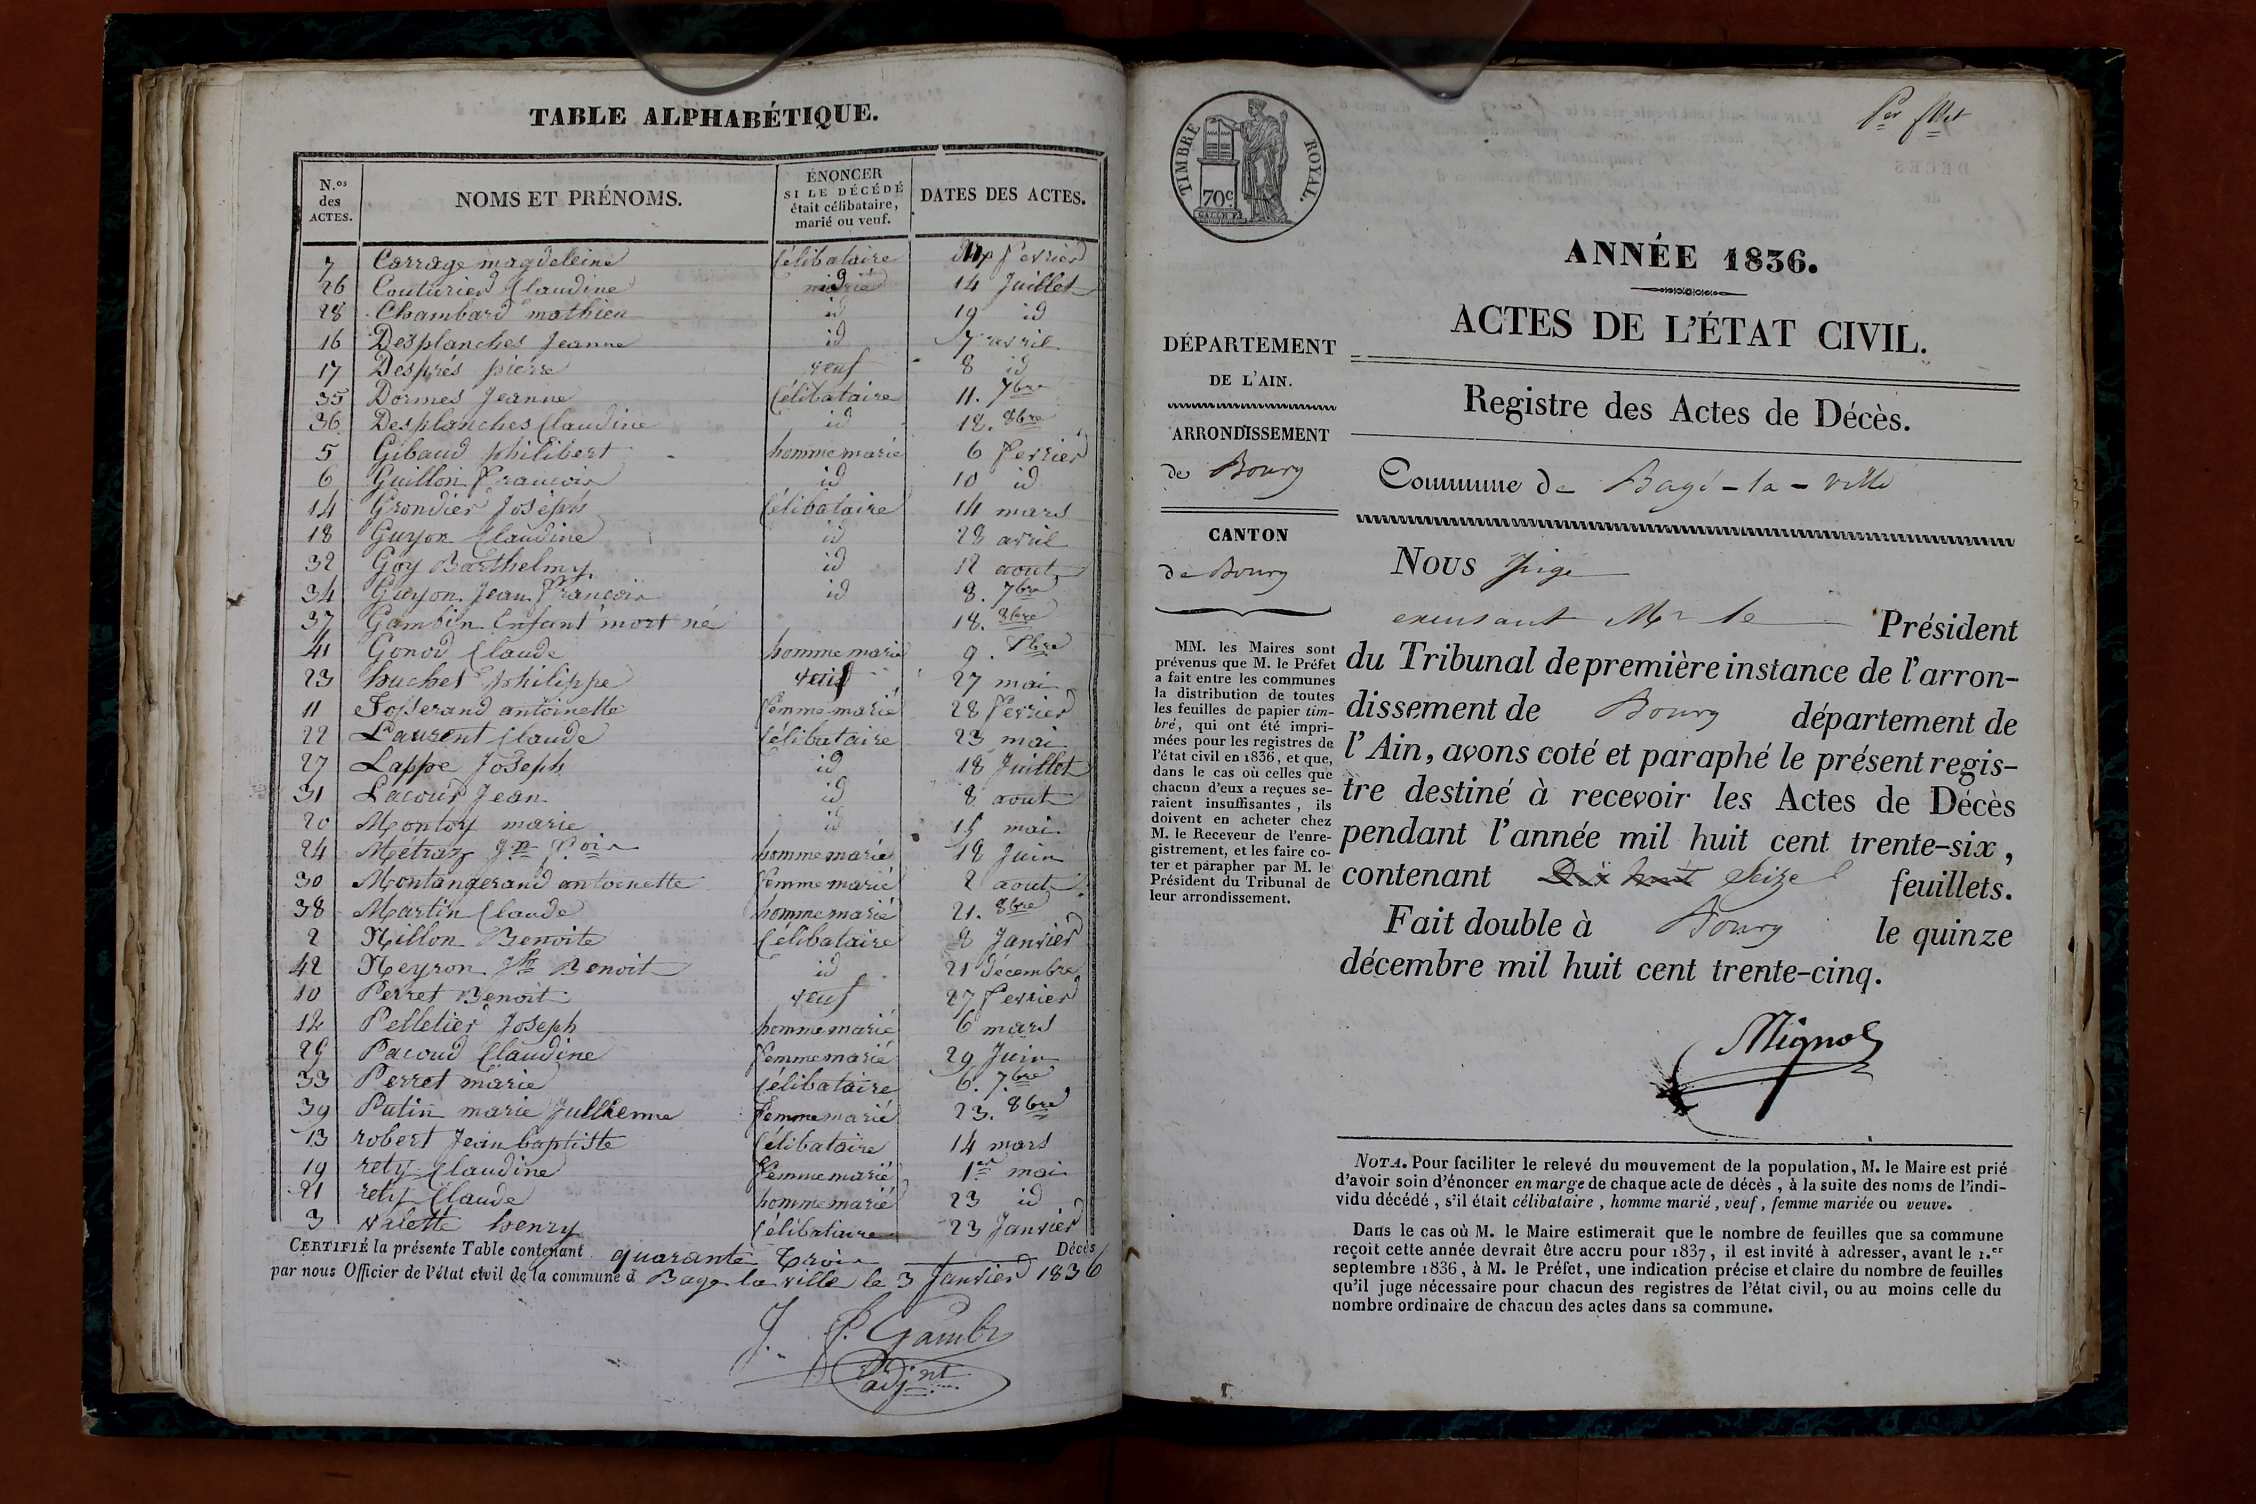 TABLE ALPHABÉTIQUE.
N.os des ACTES. NOMS ET PRÉNOMS. ÉNONCER SI LE DÉCÉDÉ était célibataire, marié ou veuf. DATES DES ACTES.
7 Carrage magdeleine Célibataire fevrier
26 Couturier Claudine id 14 Juillet
28 Chambard mathieu id 19 id
16 Desplanches Jeanne id 7 avril
17 Després pierre veuf 8 id
35 Dormes Jeanne Célibataire 11. 7bre
36 Desplanches Claudine id 12. 8bre
5 Gibaud philibert homme marié 6 fevrier
6 Guillon françois id 10 id
14 Grondier Joseph Célibataire 14 mars
18 Guyon Claudine id 28 avril
32 Goy Barthelmy id 12 aout
34 Guyon Jean françois id 8. 7bre
37 Gambin Enfant mort né 18. 8bre
41 Gonod Claude homme marié 9.
23 huchet philippe veuf 27 mai
11 Josserand antoinette femme marié 28 fevrier
22 Laurent Claude Célibataire 23 mai
27 Lappe Joseph id 18 Juillet
31 Lacour Jean id 8 aout
20 Montoy marie id 15 mai
24 Métraz Jn foir homme marié 18 Juin
30 Montangerand antoinette femme marié 2 aout
38 Martin Claude homme marié 21. 8bre
2 Nillon Benoite Célibataire 8 Janvier
42 Neyron Benoit id 21 décembre
10 Perret Benoit veuf 27 fevrier
12 Pelletier Joseph homme marié 6 mars
29 Pacoud Claudine femme marié 29 Juin
33 Perret marie Célibataire 6. 7.bre
39 Putin marie Jullienne femme marié 23. 8bre
13 robert Jean baptiste Célibataire 14 mars
19 rety Claudine femme marié 1er mai
21 rety Claude homme marié 23 id
3 valette henry Célibataire 23 Janvier
CERTIFIÉ la présente Table contenant quarante trois Décès
par nous Officier de l'état civil de la commune d Bage la ville le 3 Janvier 1836
J. P. Gambin
adjnt
Per fllet
TIMBRE ROYAL.
70c.
ANNÉE 1836.
ACTES DE L'ÉTAT CIVIL.
Registre des Actes de Décès.
Commune de Bagé-la-ville
DÉPARTEMENT
DE L'AIN.
ARRONDISSEMENT
de Bourg
CANTON
de Bourg
MM. les Maires sont
prévenus que M. le Préfet
a fait entre les communes
la distribution de toutes
les feuilles de papier tim-
bré, qui ont été impri-
mées pour les registres de
l'état civil en 1836, et que,
dans le cas où celles que
chacun d'eux a reçues se-
raient insuffisantes, ils
doivent en acheter chez
M. le Receveur de l'enre-
gistrement, et les faire co-
ter et parapher par M. le
Président du Tribunal de
leur arrondissement.
NOUS Juge
excusant Mr le Président
du Tribunal de première instance de l'arron-
dissement de Bourg département de
l'Ain, avons coté et paraphé le présent regis-
tre destiné à recevoir les Actes de Décès
pendant l'année mil huit cent trente-six,
contenant Dix huit Seize feuillets.
Fait double à Bourg le quinze
décembre mil huit cent trente-cinq.
Mignot
NOTA. Pour faciliter le relevé du mouvement de la population, M. le Maire est prié
d'avoir soin d'énoncer en marge de chaque acte de décès, à la suite des noms de l'indi-
vidu décédé, s'il était célibataire, homme marié, veuf, femme mariée ou veuve.
Dans le cas où M. le Maire estimerait que le nombre de feuilles que sa commune
reçoit cette année devrait être accru pour 1837, il est invité à adresser, avant le 1.er
septembre 1836, à M. le Préfet, une indication précise et claire du nombre de feuilles
qu'il juge nécessaire pour chacun des registres de l'état civil, ou au moins celle du
nombre ordinaire de chacun des actes dans sa commune.